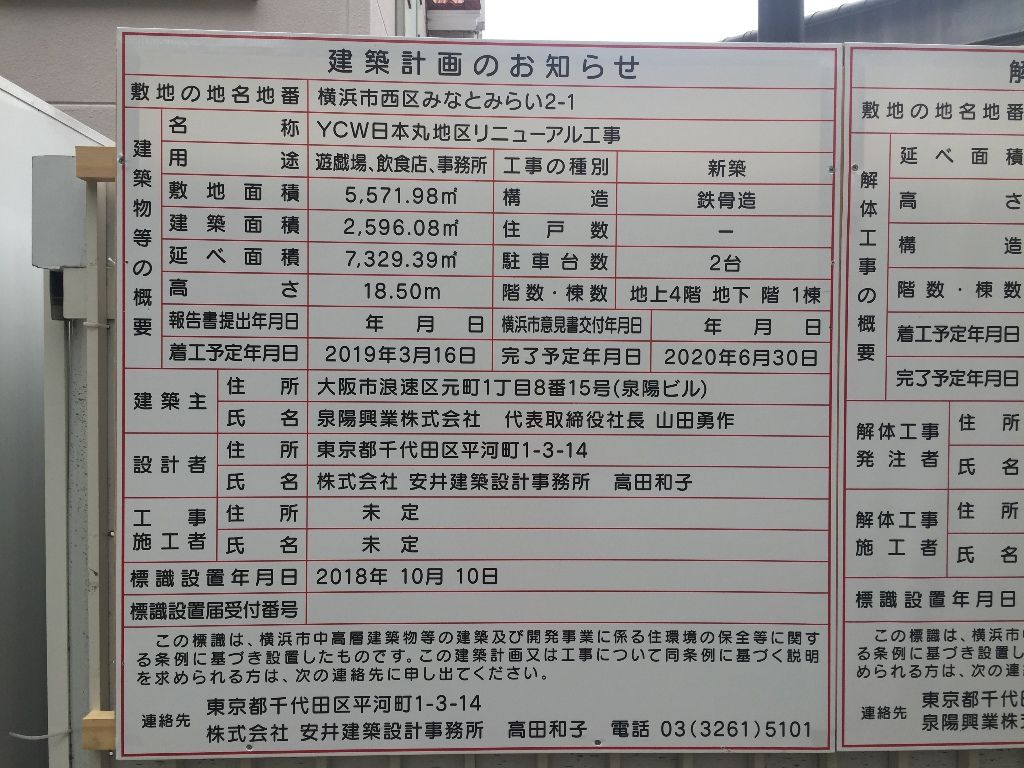 建築計画のお知らせ
敷地の地名地番 横浜市西区みなとみらい2-1
建築物等の概要
名称 YCW日本丸地区リニューアル工事
用途 遊戯場、飲食店、事務所 工事の種別 新築
敷地面積 5,571.98㎡ 構造 鉄骨造
建築面積 2,596.08㎡ 住戸数 ー
延べ面積 7,329.39㎡ 駐車台数 2台
高さ 18.50m 階数・棟数 地上4階 地下 階 1棟
報告書提出年月日 年 月 日 横浜市意見書交付年月日 年 月 日
着工予定年月日 2019年3月16日 完了予定年月日 2020年6月30日
建築主 住所 大阪市浪速区元町1丁目8番15号(泉陽ビル)
氏名 泉陽興業株式会社 代表取締役社長 山田勇作
設計者 住所 東京都千代田区平河町1-3-14
氏名 株式会社 安井建築設計事務所 高田和子
工事施工者 住所 未定
氏名 未定
標識設置年月日 2018年 10月 10日
標識設置届受付番号
この標識は、横浜市中高層建築物等の建築及び開発事業に係る住環境の保全等に関す
る条例に基づき設置したものです。この建築計画又は工事について同条例に基づく説明
を求められる方は、次の連絡先に申し出てください。
連絡先 東京都千代田区平河町1-3-14
株式会社 安井建築設計事務所 高田和子 電話 03(3261)5101
解
敷地の地名地番
解体工事の概要
延べ面積
高さ
構造
階数・棟数
着工予定年月日
完了予定年月日
解体工事発注者 住所
氏名
解体工事施工者 住所
氏名
標識設置年月日
この標識は、横浜市
る条例に基づき設置し
められる方は、次の連絡
連絡先 東京都千代
泉陽興業株